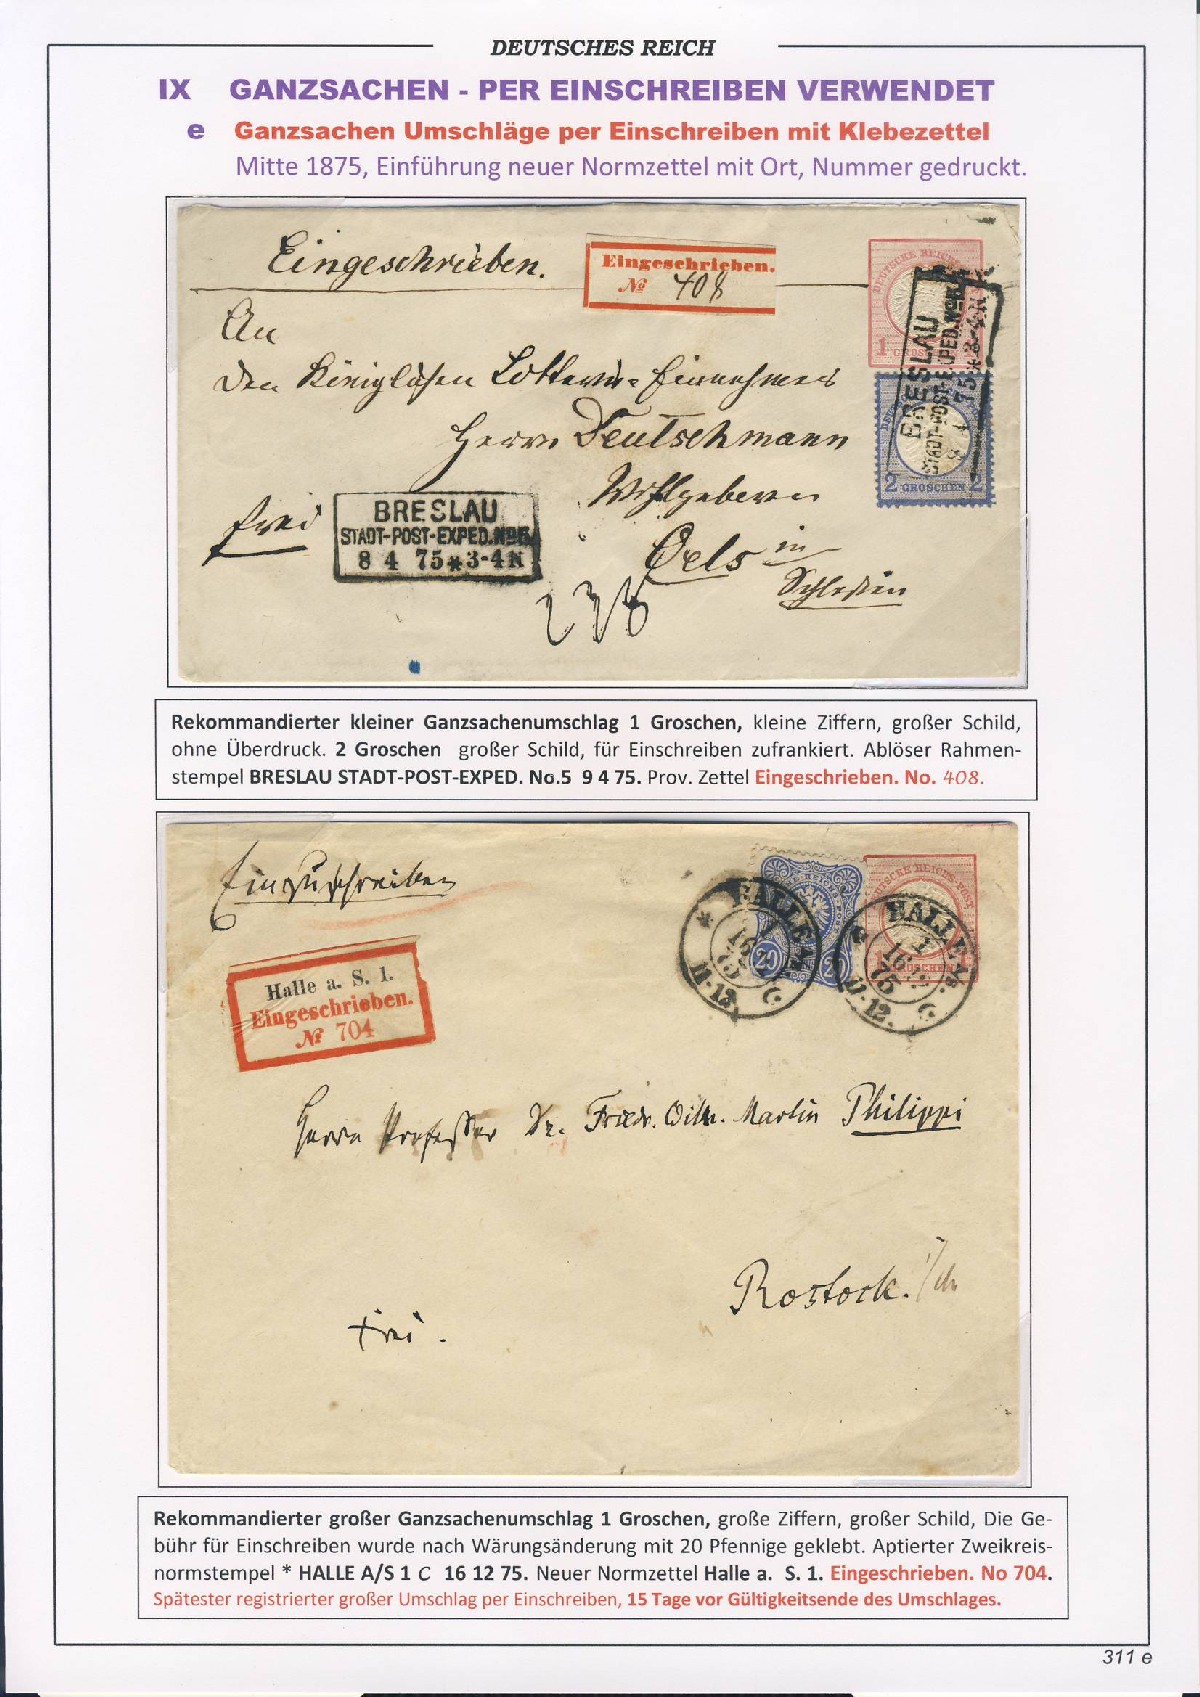 DEUTSCHES REICH
IX GANZSACHEN - PER EINSCHREIBEN VERWENDET
e Ganzsachen Umschläge per Einschreiben mit Klebezettel
Mitte 1875, Einführung neuer Normzettel mit Ort, Nummer gedruckt.
Eingeschrieben.
Eingeschrieben.
№ 408
DEUTSCHE REICHS
1 GROSCHEN
BRESLAU
STADT-POST-EXPED.
2 GROSCHEN 2
An
den Königlichen Lotterie-Einnehmer
Herrn Deutschmann
Wohlgeboren
frei
Oels in
Schlesien
BRESLAU
STADT-POST-EXPED.No5
8 4 75*3-4N
238
Rekommandierter kleiner Ganzsachenumschlag 1 Groschen, kleine Ziffern, großer Schild,
ohne Überdruck. 2 Groschen großer Schild, für Einschreiben zufrankiert. Ablöser Rahmen-
stempel BRESLAU STADT-POST-EXPED. No.5 9 4 75. Prov. Zettel Eingeschrieben. No. 408.
Einzuschreiben
Halle a. S. 1.
Eingeschrieben.
№ 704
* HALLE A/S.
1
16 12
75
11-12.
C.
20 20
DEUTSCHE REICHS-POST
GROSCHEN
HALLE A/S.
1
16 12
75
11-12.
C.
Herrn Professor Dr. Friedr. Wilh. Martin Philippi
Rostock. i/M.
frei.
Rekommandierter großer Ganzsachenumschlag 1 Groschen, große Ziffern, großer Schild, Die Ge-
bühr für Einschreiben wurde nach Wärungsänderung mit 20 Pfennige geklebt. Aptierter Zweikreis-
normstempel * HALLE A/S 1 C 16 12 75. Neuer Normzettel Halle a. S. 1. Eingeschrieben. No 704.
Spätester registrierter großer Umschlag per Einschreiben, 15 Tage vor Gültigkeitsende des Umschlages.
311 e